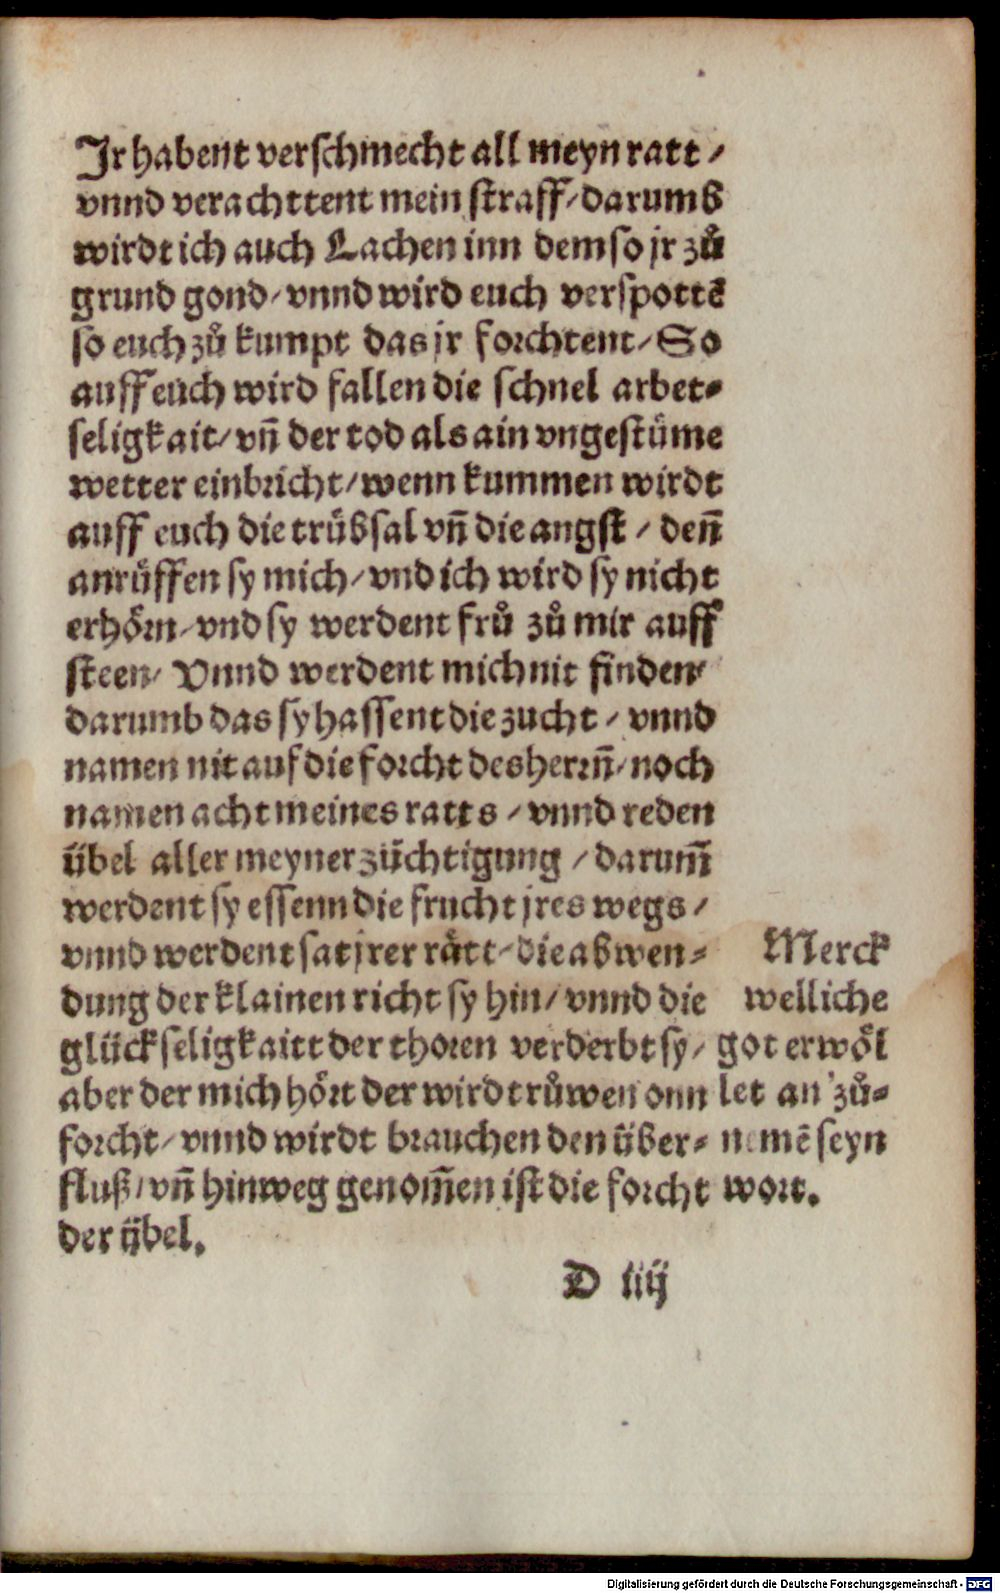 Jr habent verschmecht all meyn ratt /
vnnd verachttent mein straff / darumb
wirdt ich auch Lachen inn dem so jr zů
grund gond / vnnd wird euch verspottē
so euch zů kumpt das jr forchtent / So
auff euch wird fallen die schnel arbet⸗
seligkait / vñ der tod als ain vngestüme
wetter einbricht / wenn kummen wirdt
auff euch die trübsal vñ die angst / deñ
anrüffen sy mich / vnd ich wird sy nicht
erhörn / vnd sy werdent frů zů mir auff
steen / Vnnd werdent mich nit finden /
darumb das sy hassent die zucht / vnnd
namen nit auf die forcht des herrñ / noch
namen acht meines ratts / vnnd reden
übel aller meyner züchtigung / darum̄
werdent sy essenn die frucht jres wegs /
vnnd werdent sat jrer rätt / die abwen⸗
dung der klainen richt sy hin / vnnd die
glückseligkaitt der thoren verderbt sy /
aber der mich hört der wirdt růwen onn
forcht / vnnd wirdt brauchen den über⸗
fluß / vñ hinweg genom̄en ist die forcht
der übel.
Merck
welliche
got erwöl
let an zů⸗
nemē seyn
wort.
D iiij
Digitalisierung gefördert durch die Deutsche Forschungsgemeinschaft - DFG